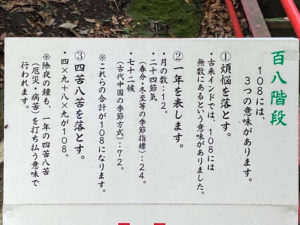 百八階段
108には、
3つの意味があります。
①煩悩を落とす。
・古来インドでは、108には
無数にあるという意味がありました。
②一年を表します。
・月の数:12。
・二十四節気
(春分・冬至等の季節指標):24。
・七十二候
(古代中国の季節方式):72。
※これらの合計が108になります。
③四苦八苦を落とす。
・4×9+8×9が108。
※除夜の鐘も、一年の四苦八苦
(厄災・病苦)を打ち払う意味で
行われます。